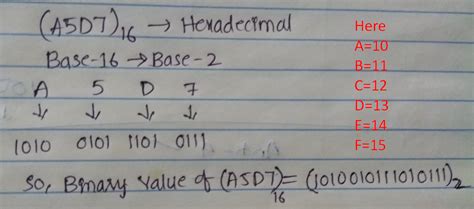 (A5D7)16 → Hexadecimal
Base-16 → Base-2
A 5 D 7
↓ ↓ ↓ ↓
1010 0101 1101 0111
So, Binary Value of (A5D7)16 = (1010010111010111)2
Here
A=10
B=11
C=12
D=13
E=14
F=15